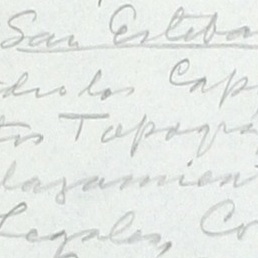 San Esteba
dro los Cap
tos Topográ
lazamient
Legales, Co